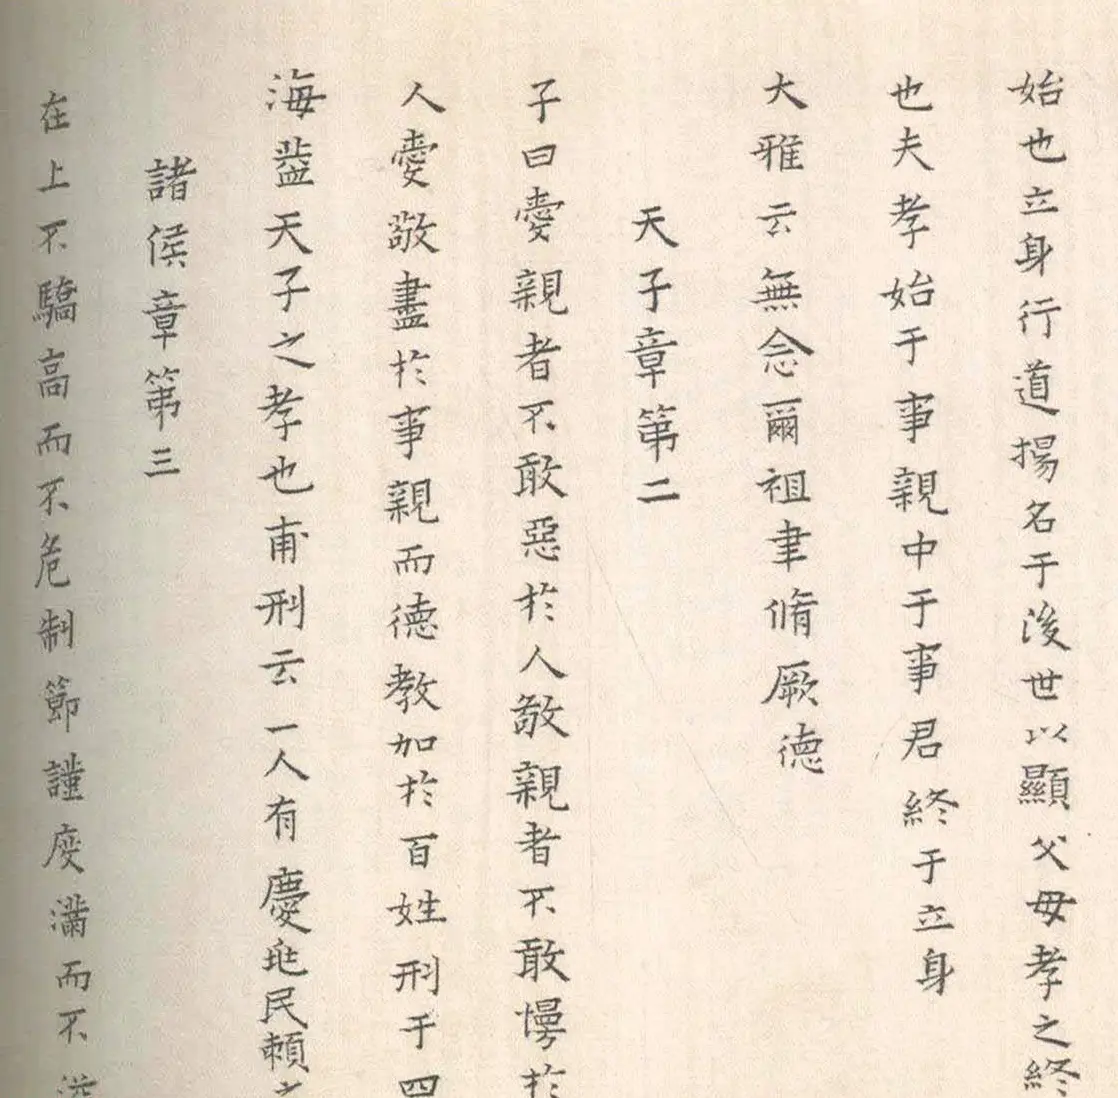 始也立身行道揚名于後世以顯父母孝之終
也夫孝始于事親中于事君終于立身
大雅云無念爾祖聿脩厥德
天子章第二
子曰愛親者不敢惡於人敬親者不敢慢於
人愛敬盡於事親而德教加於百姓刑于四
海葢天子之孝也甫刑云一人有慶兆民賴之
諸侯章第三
在上不驕高而不危制節謹度滿而不溢